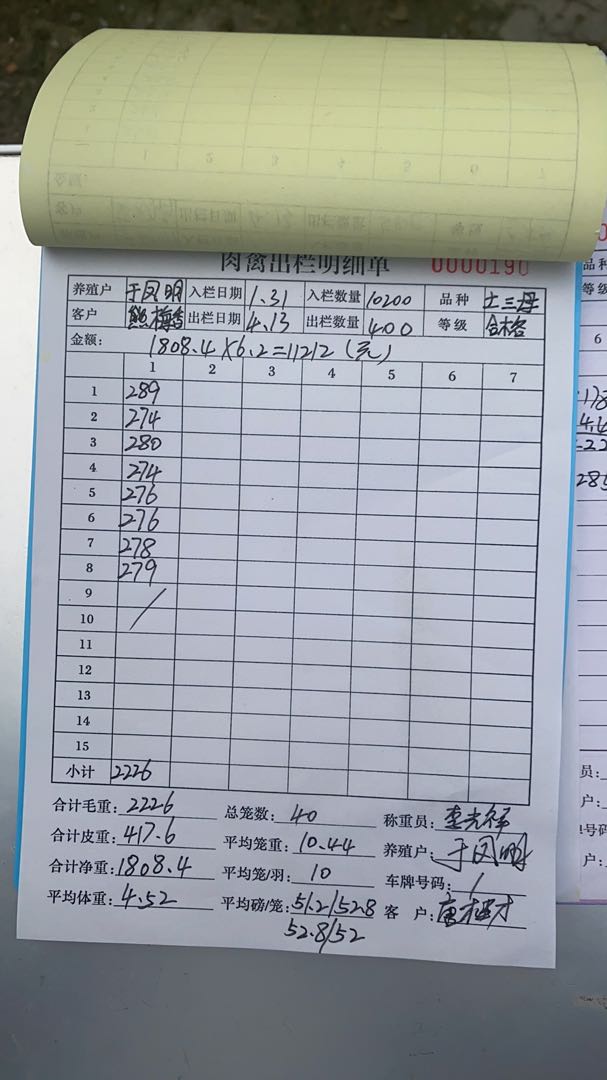 肉禽出栏明细单 0000190
养殖户 于凤明 入栏日期 1.31 入栏数量 10200 品种 土三母
客户 熊梅香 出栏日期 4.13 出栏数量 400 等级 合格
金额: 1808.4×6.2=11212(元)
1 2 3 4 5 6 7
1 289
2 274
3 280
4 274
5 276
6 276
7 278
8 279
9
10
11
12
13
14
15
小计 2226
合计毛重: 2226 总笼数: 40 称重员:
合计皮重: 417.6 平均笼重: 10.44 养殖户: 于凤明
合计净重: 1808.4 平均笼/羽: 10 车牌号码: /
平均体重: 4.52 平均磅/笼: 51.2/52.8 客 户:
52.8/52